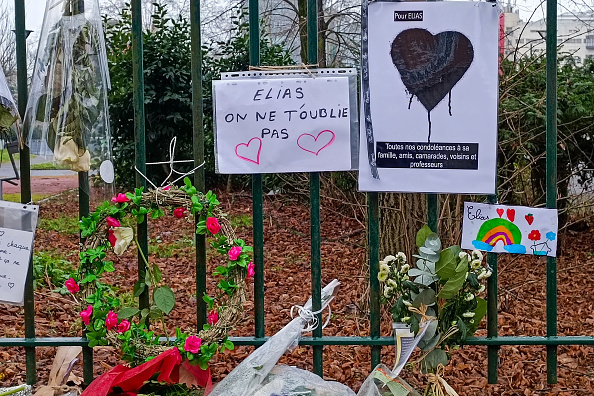 Pour ELIAS
ELIAS
ON NE T'OUBLIE
PAS
Toutes nos condoléances à sa
famille, amis, camarades, voisins et
professeurs
Elias
chaque